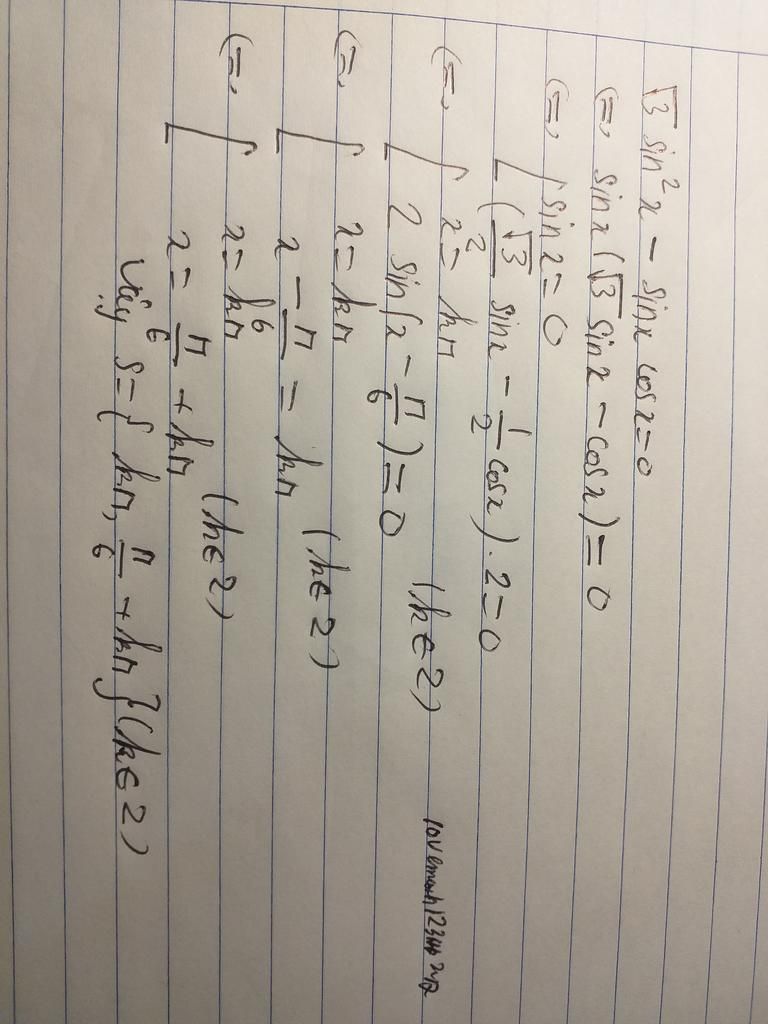 √3 sin²x - sinx cosx = 0
(=) sinx (√3 sinx - cosx) = 0
(=) [ sinx = 0
(√3/2 sinx - 1/2 cosx) . 2 = 0
(=) [ x = kπ
2 sin(x - π/6) = 0 (k ∈ Z)
(=) [ x = kπ
x - π/6 = kπ (k ∈ Z)
(=) [ x = kπ
x = π/6 + kπ (k ∈ Z)
Vậy S = { kπ, π/6 + kπ } (k ∈ Z)